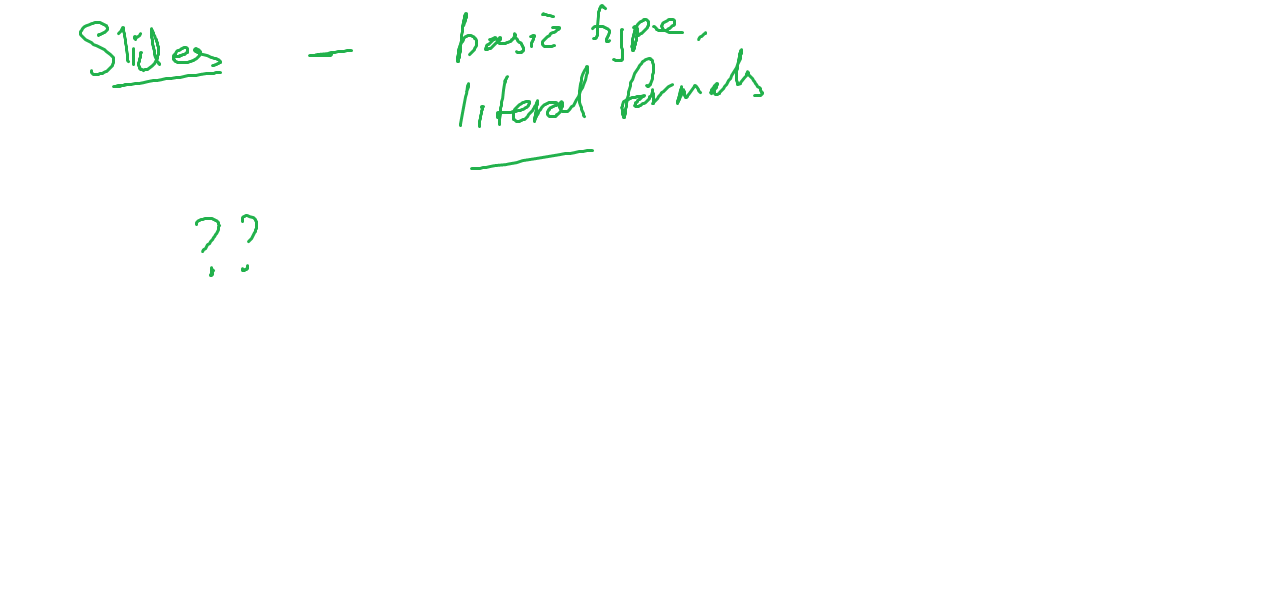 Slides — basic type,
literal formats
??